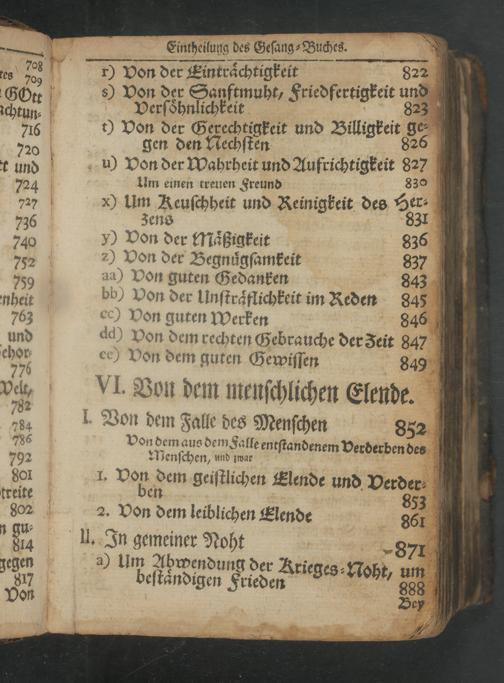 708
tes 709
GOtt
achtun-
716
720
tt und
724
727
736
740
752
759
enheit
763
und
ehor-
776
Welt,
782
784
786
792
801
treite
802
n gu-
814
gegen
817
Von
Eintheilung des Gesang-Buches.
r) Von der Einträchtigkeit 822
s) Von der Sanftmuht, Friedfertigkeit und
Versöhnlichkeit 823
t) Von der Gerechtigkeit und Billigkeit ge-
gen den Nechsten 826
u) Von der Wahrheit und Aufrichtigkeit 827
Um einen treuen Freund 830
x) Um Keuschheit und Reinigkeit des Her-
zens 831
y) Von der Mäßigkeit 836
z) Von der Begnügsamkeit 837
aa) Von guten Gedanken 843
bb) Von der Unsträflichkeit im Reden 845
cc) Von guten Werken 846
dd) Von dem rechten Gebrauche der Zeit 847
ee) Von dem guten Gewissen 849
VI. Von dem menschlichen Elende.
I. Von dem Falle des Menschen 852
Von dem aus dem Falle entstandenem Verderben des
Menschen, und zwar
1. Von dem geistlichen Elende und Verder-
ben 853
2. Von dem leiblichen Elende 861
II. In gemeiner Noht 871
a) Um Abwendung der Krieges-Noht, um
beständigen Frieden 888
Bey